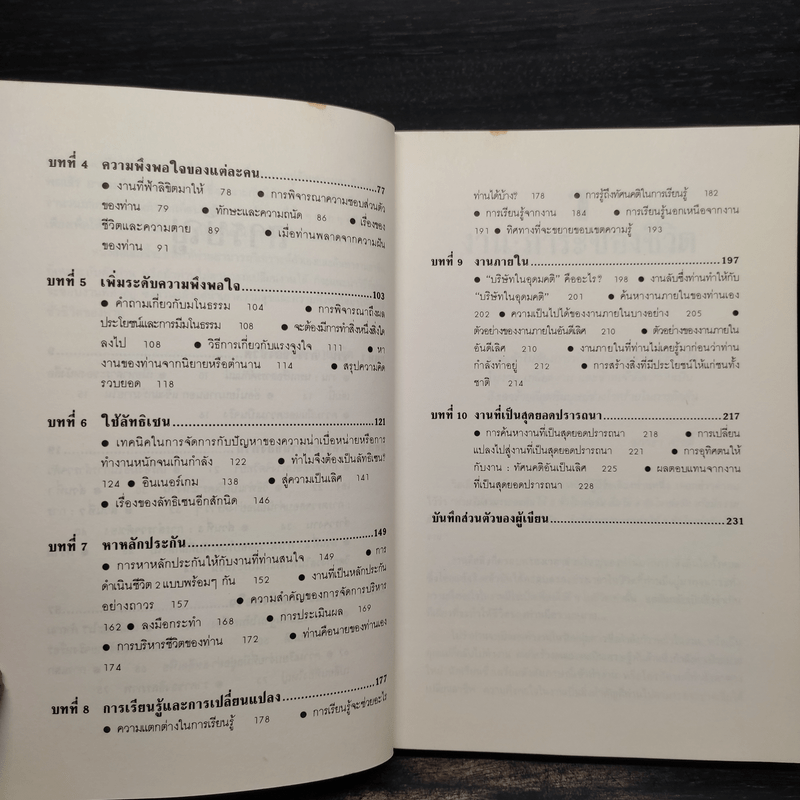 บทที่ 4 ความพึงพอใจของแต่ละคน 77
● งานที่ฟ้าลิขิตมาให้ 78 ● การพิจารณาความชอบส่วนตัว
ของท่าน 79 ● ทักษะและความถนัด 86 ● เรื่องของ
ชีวิตและความตาย 89 ● เมื่อท่านพลาดจากความฝัน
ของท่าน 91
บทที่ 5 เพิ่มระดับความพึงพอใจ 103
● คำถามเกี่ยวกับมโนธรรม 104 ● การพิจารณาถึงผล
ประโยชน์และการมีมโนธรรม 108 ● จะต้องมีการทำสิ่งหนึ่งสิ่งใด
ลงไป 108 ● วิธีการเกี่ยวกับแรงจูงใจ 111 ● หา
งานของท่านจากนิยายหรือตำนาน 114 ● สรุปความคิด
รวบยอด 118
บทที่ 6 ใช้ลัทธิเซน 121
● เทคนิคในการจัดการกับปัญหาของความน่าเบื่อหน่ายหรือการ
ทำงานหนักจนเกินกำลัง 122 ● ทำไมจึงต้องเป็นลัทธิเซน?
124 ● อินเนอร์เกม 138 ● สู่ความเป็นเลิศ 141
● เรื่องของลัทธิเซนอีกสักนิด 146
บทที่ 7 หาหลักประกัน 149
● การหาหลักประกันให้กับงานที่ท่านสนใจ 149 ● การ
ดำเนินชีวิต 2 แบบพร้อมๆ กัน 152 ● งานที่เป็นหลักประกัน
อย่างถาวร 157 ● ความสำคัญของการจัดการบริหาร
162 ● ลงมือกระทำ 168 ● การประเมินผล 169
● การบริหารชีวิตของท่าน 172 ● ท่านคือนายของท่านเอง
174
บทที่ 8 การเรียนรู้และการเปลี่ยนแปลง 177
● ความแตกต่างในการเรียนรู้ 178 ● การเรียนรู้จะช่วยอะไร
ท่านได้บ้าง? 178 ● การรู้ถึงทัศนคติในการเรียนรู้ 182
● การเรียนรู้จากงาน 184 ● การเรียนรู้นอกเหนือจากงาน
191 ● ทิศทางที่จะขยายขอบเขตความรู้ 193
บทที่ 9 งานภายใน 197
● "บริษัทในอุดมคติ" คืออะไร? 198 ● งานลับซึ่งท่านทำให้กับ
"บริษัทในอุดมคติ" 201 ● ค้นหางานภายในของท่านเอง
202 ● ความเป็นไปได้ของงานภายในบางอย่าง 205 ●
ตัวอย่างของงานภายในอันดีเลิศ 210 ● ตัวอย่างของงานภายใน
อันดีเลิศ 210 ● งานภายในที่ท่านไม่เคยรู้มาก่อนว่าท่าน
กำลังทำอยู่ 212 ● การสร้างสิ่งที่มีประโยชน์ให้แก่ชนทั้ง
ชาติ 214
บทที่ 10 งานที่เป็นสุดยอดปรารถนา 217
● การค้นหางานที่เป็นสุดยอดปรารถนา 218 ● การเปลี่ยน
แปลงไปสู่งานที่เป็นสุดยอดปรารถนา 221 ● การอุทิศตนให้
กับงาน : ทัศนคติอันเป็นเลิศ 225 ● ผลตอบแทนจากงาน
ที่เป็นสุดยอดปรารถนา 228
บันทึกส่วนตัวของผู้เขียน 231